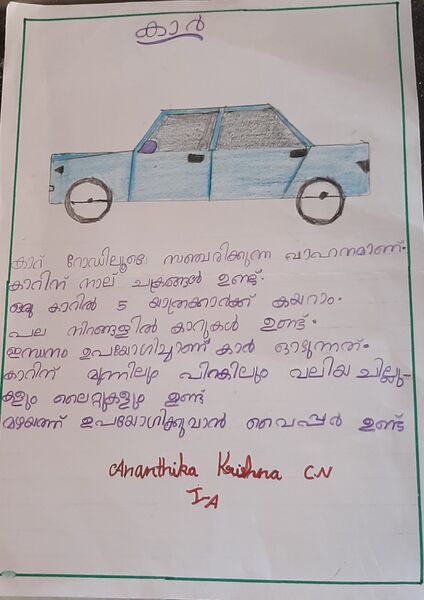 കാർ
കാറ് റോഡിലൂടെ സഞ്ചരിക്കുന്ന വാഹനമാണ്.
കാറിന് നാല് ചക്രങ്ങൾ ഉണ്ട്.
ഒരു കാറിൽ 5 യാത്രക്കാർക്ക് കയറാം.
പല നിറങ്ങളിൽ കാറുകൾ ഉണ്ട്.
ഇന്ധനം ഉപയോഗിച്ചാണ് കാർ ഓടുന്നത്.
കാറിന് മുന്നിലും പിറകിലും വലിയ ചില്ലു-
കളും ലൈറ്റുകളും ഉണ്ട്
മഴയത്ത് ഉപയോഗിക്കുവാൻ വൈപ്പർ ഉണ്ട്
Ananthika Krishna C.N
I-A